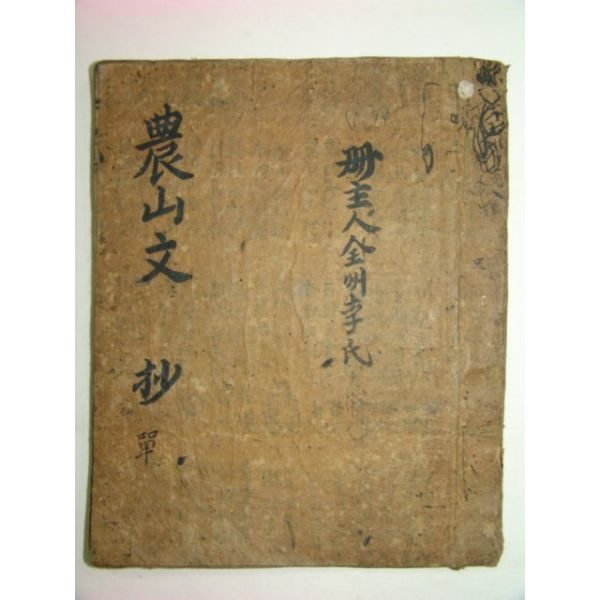 冊主人全州李氏
農山文 抄 單